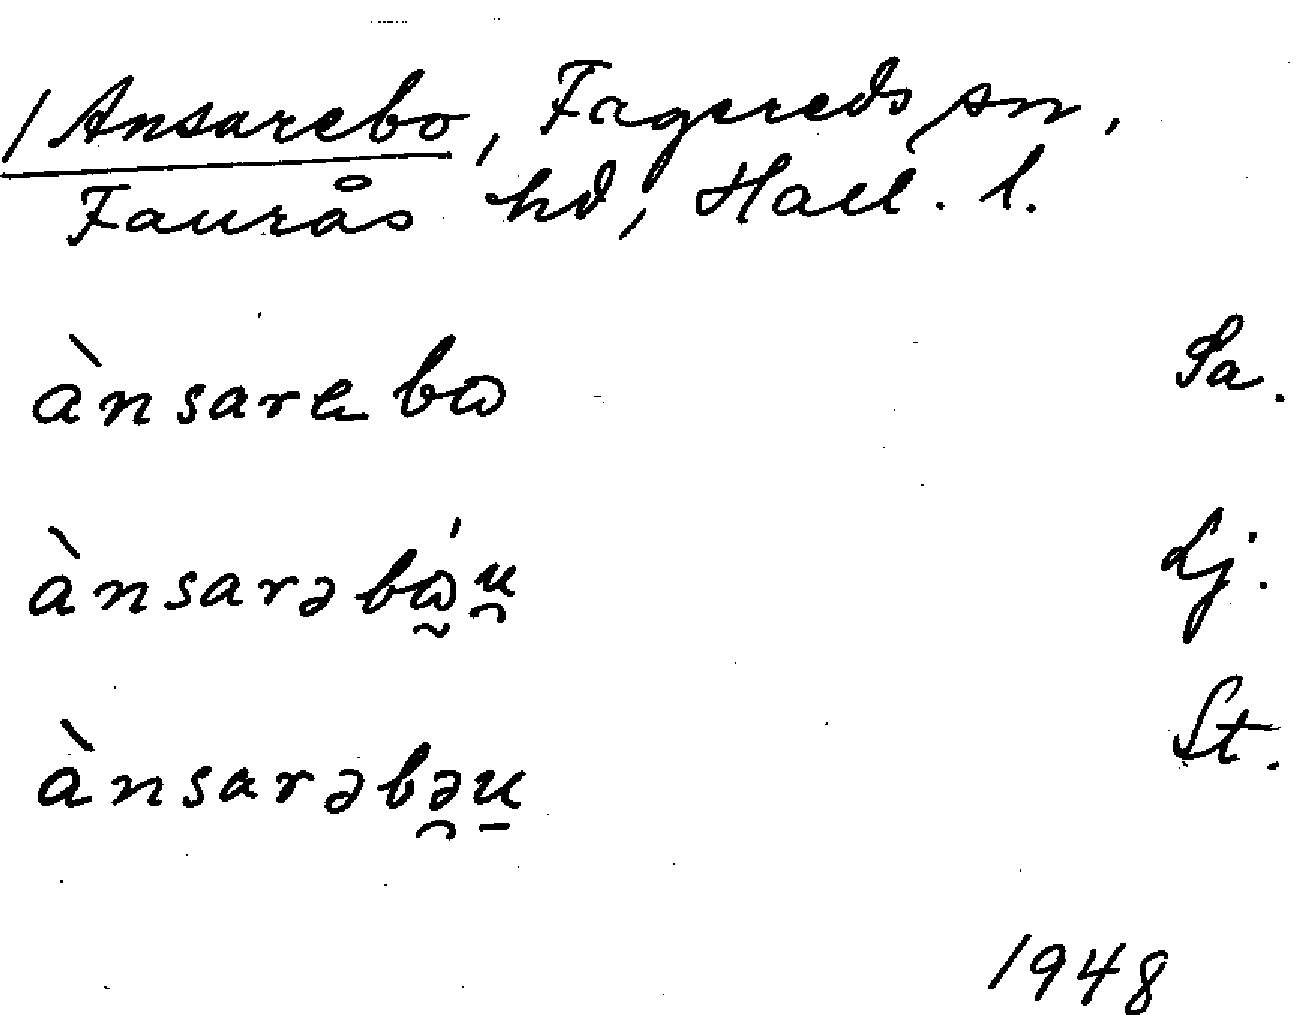 / Ansarebo, Fagereds sn,
Faurås hd, Hall. l.
ànsareba Sa.
ànsarəbά̰u̯ Lj.
ànsarəbə̯u̠ St.
1948